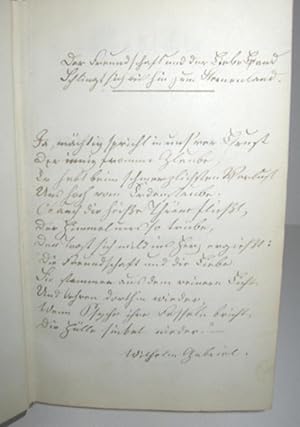 Der Freundschaft und der Liebe Band
Schlingt sich bis hin zum Sternenland.
Ja, mächtig spricht in uns'rer Brust
Der innig fromme Glaube,
Er hebt beim schmerzlichsten Verlust
Uns hoch vom Erdenstaube.
O auch die heißste Thräne fließt,
Der Himmel uns so trübe,
Den Trost sich mild ins Herz ergießt:
Die Freundschaft und die Liebe
Sie stammen aus dem reinern Licht,
Und kehren dorthin wieder,
Wenn Psyche ihre Fesseln bricht,
Die Hülle sinket nieder.
Wilhelm Gabriel.